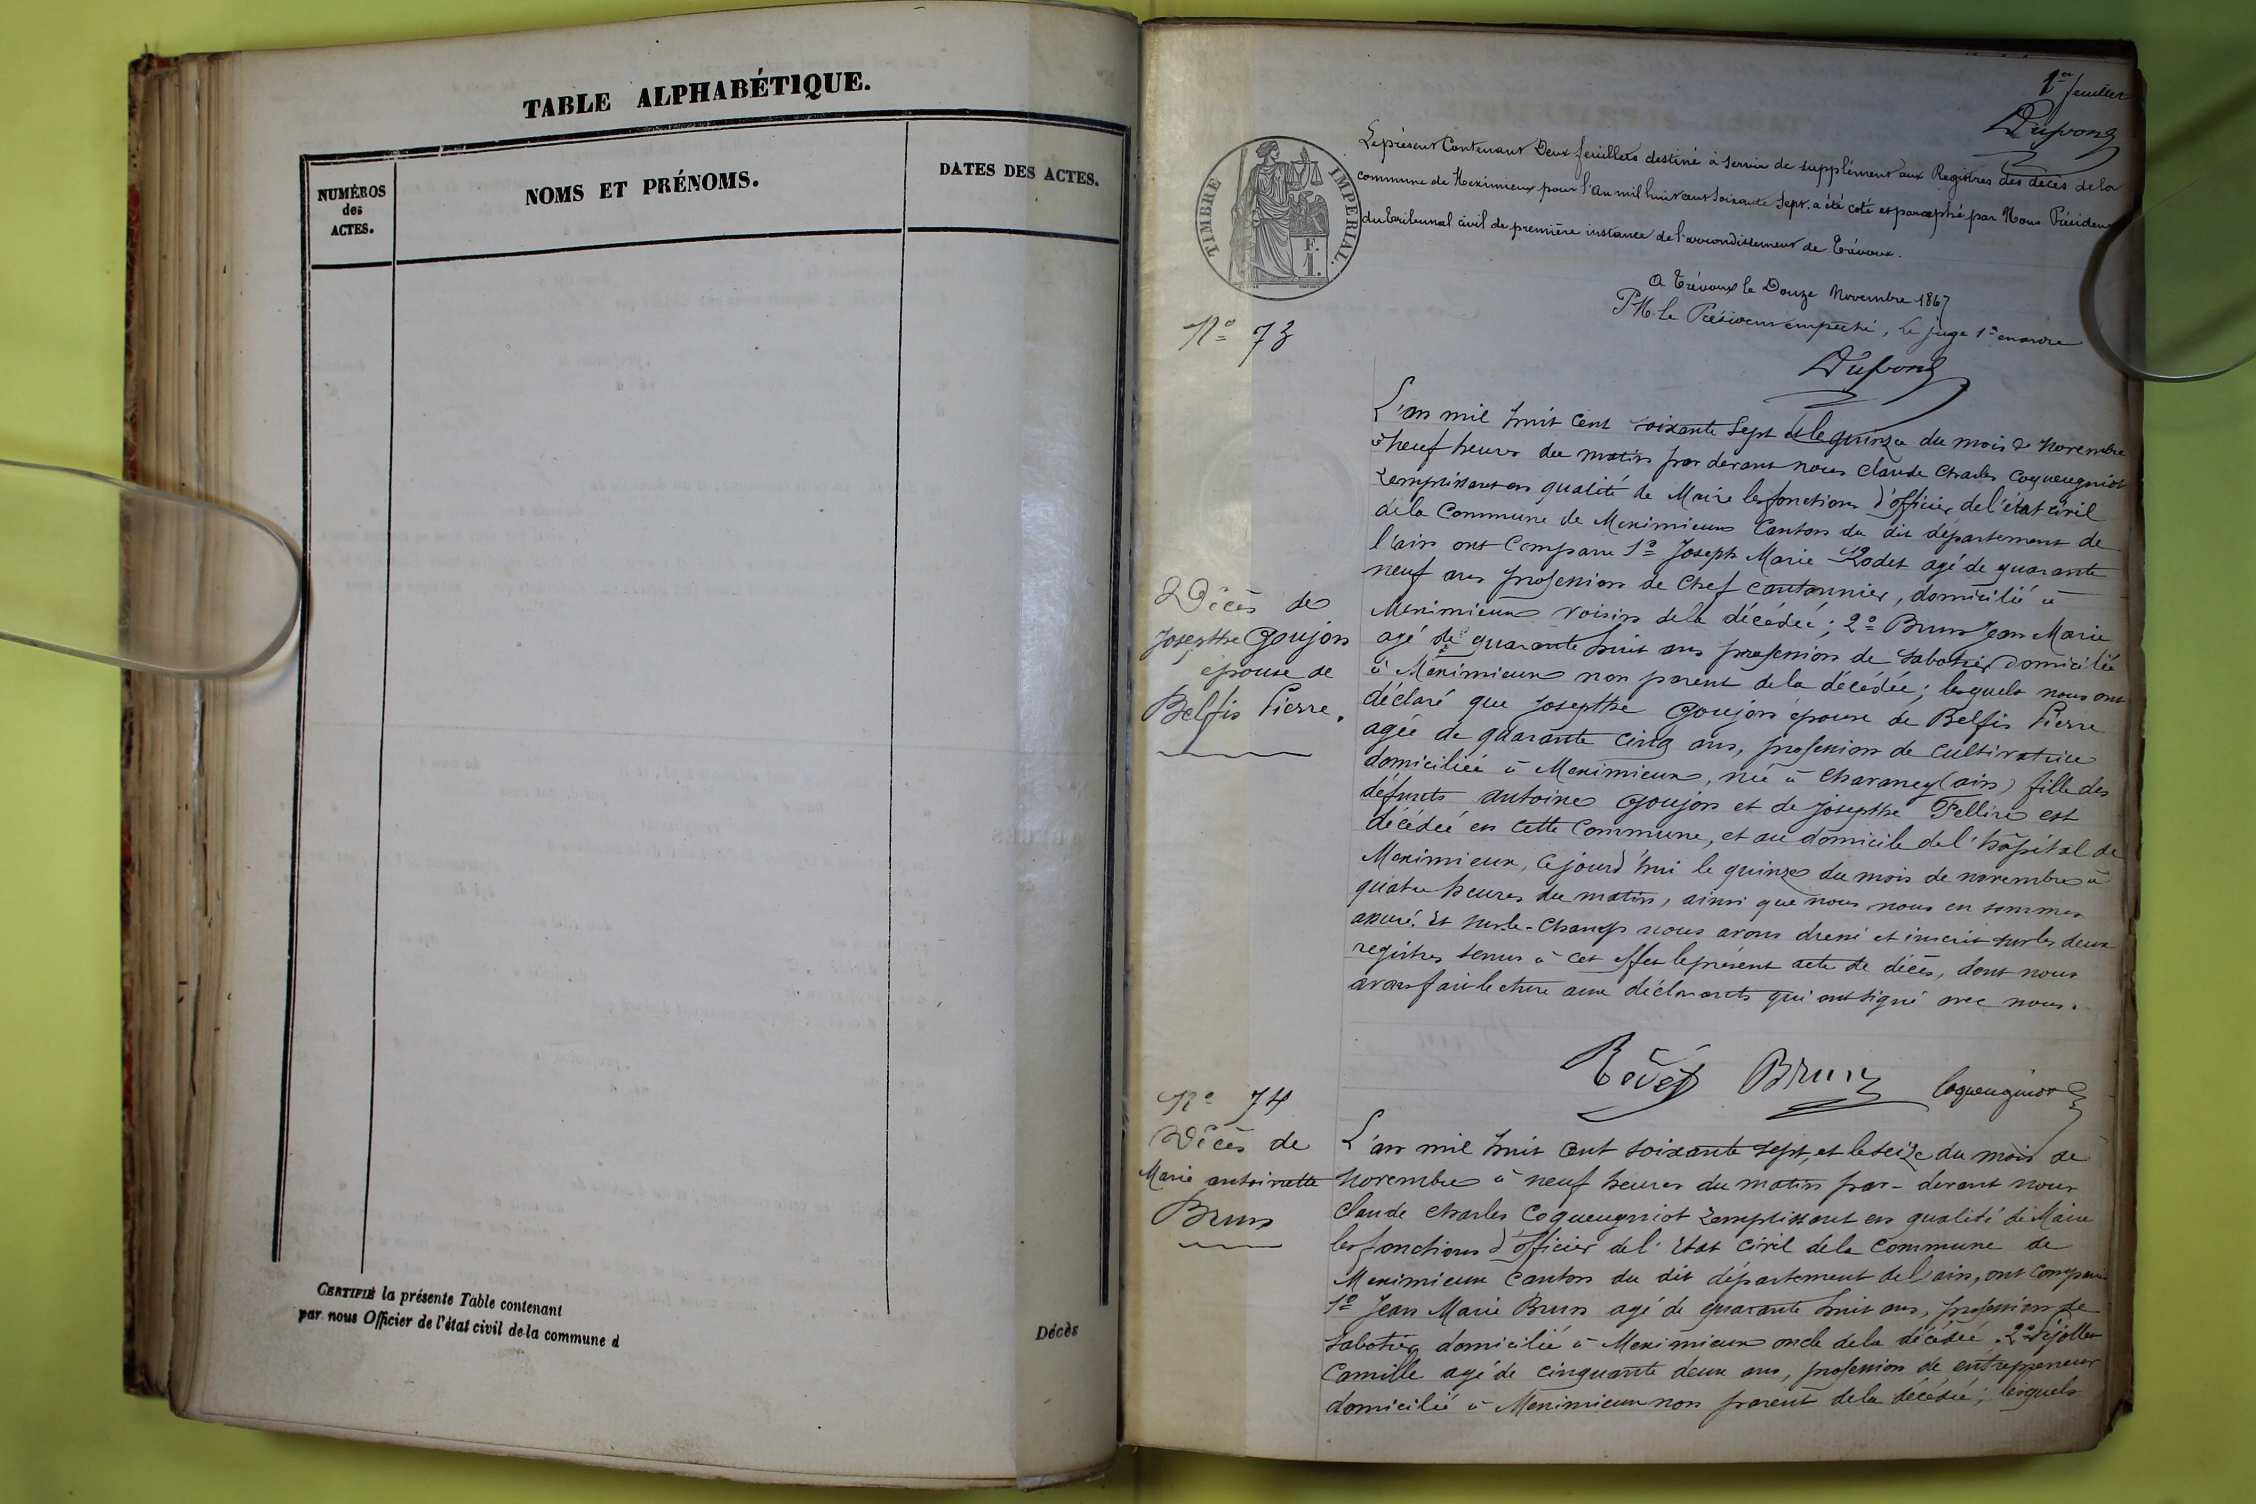 TABLE ALPHABÉTIQUE.
NUMÉROS
des
ACTES.
NOMS ET PRÉNOMS.
DATES DES ACTES.
CERTIFIÉ la présente Table contenant
par nous Officier de l'état civil de la commune d
Décès
1er feuillet
Dupond
TIMBRE IMPERIAL.
F.
1.
Le présent Contenant Deux feuillets destiné à servir de supplément aux Registres des décès de la
commune de Meximieux pour l'an mil huit cent soixante sept. a été coté et paraphé par Nous Président
du tribunal civil de première instance de l'arrondissement de Trévoux.
a Trévoux le Douze Novembre 1867
P M. le Président empêché, le juge 1er en ordre
Dupond
No 73
Décès de
Josephte Goujon
épouse de
Belfis Pierre.
L'an mil huit cent soixante sept et le quinze du mois de Novembre
à neuf heures du matin par devant nous Claude Charles Coqueugniot
remplissant en qualité de Maire les fonctions d'officier de l'état civil
de la Commune de Meximieux Canton du dit département de
l'ain ont Comparu 1o Joseph Marie Rodet agé de quarante
neuf ans profession de Chef cantonnier, domicilié à
Meximieux voisin de la décédée; 2o Brun Jean Marie
agé de quarante huit ans profession de sabotier domicilié
à Meximieux non parent de la décédée; lesquels nous ont
déclaré que Josephte Goujon épouse de Belfis Pierre
agée de quarante cinq ans, profession de cultivatrice
domiciliée à Meximieux, née à Charancy (ain) fille des
défunts antoine Goujon et de Josephte Pellire est
décédée en cette Commune, et au domicile de l'hôpital de
Meximieux, Cejourd'hui le quinze du mois de novembre à
quatre heures du matin, ainsi que nous nous en sommes
assuré. Et sur-le-Champ nous avons dressé et inscrit sur les deux
registres tenus à cet effet le présent acte de décès, dont nous
avons fait lecture aux déclarants qui ont signé avec nous.
Rodet Brun Coqueugniot
No 74
Décès de
Marie antoinette
Brun
L'an mil huit cent soixante sept, et le seize du mois de
novembre à neuf heures du matin par-devant nous
Claude Charles Coqueugniot remplissant en qualité de Maire
les fonctions d'officier de l'Etat civil de la commune de
Meximieux canton du dit département de l'ain, ont comparu
1o Jean Marie Brun agé de quarante huit ans, profession de
sabotier domicilié à Meximieux oncle de la décédée. 2o
Camille agé de cinquante deux ans, profession de entrepreneur
domicilié à Meximieux non parent de la décédée; lesquels